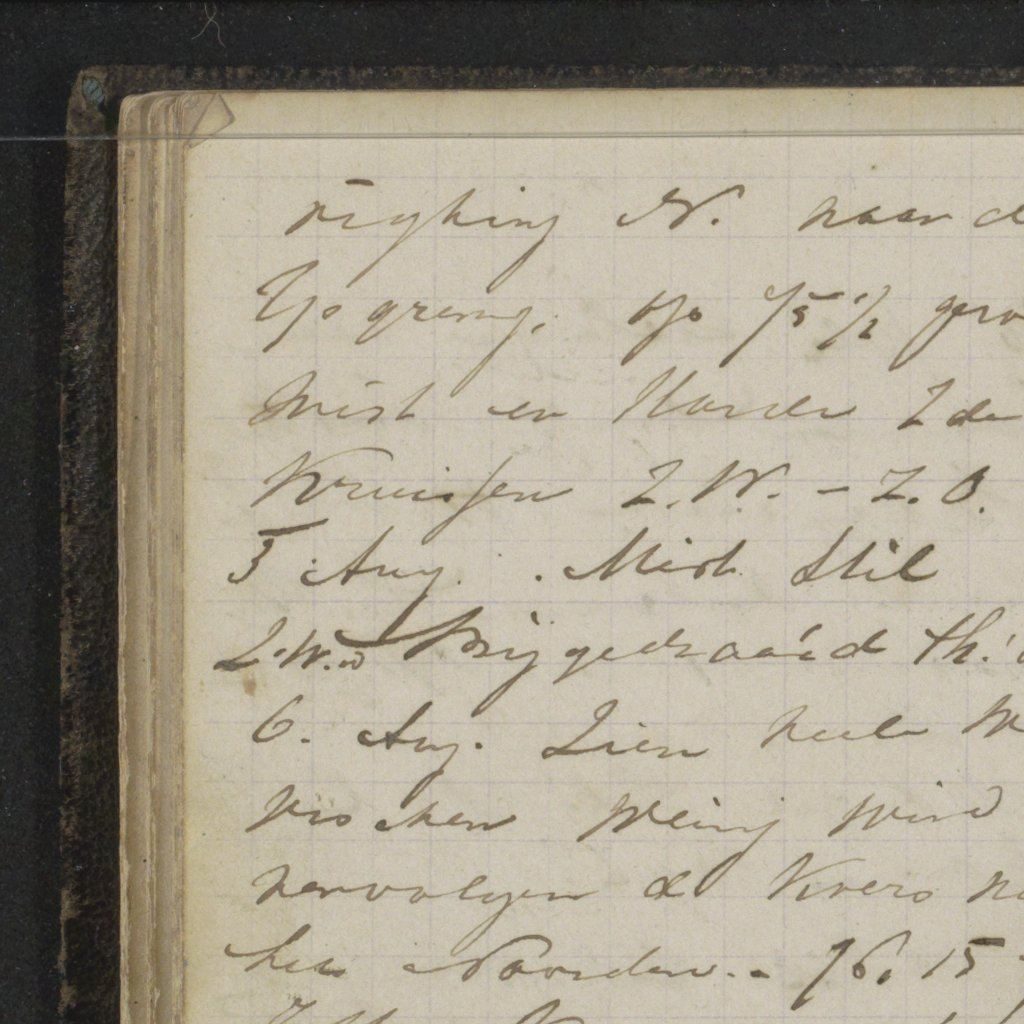 righting N. naar d
Ijs grens, op 75 1/2 gero
Mist en Harde Z
Kruissen Z.W. – Z.O.
5 Aug. Mist Stil
Z.W. Bijgedraaid th.
6. Aug. Zien veele W
visschen Weinig Wind
vervolgen de Koers n
het Noorden. 76, 15